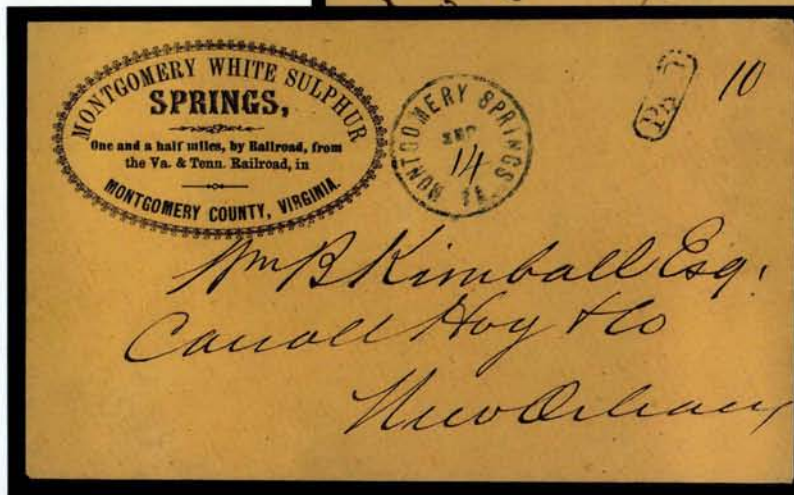 MONTGOMERY WHITE SULPHUR
SPRINGS,
One and a half miles, by Railroad, from
the Va. & Tenn. Railroad, in
MONTGOMERY COUNTY, VIRGINIA.
MONTGOMERY SPRINGS
SEP
14
PA D
10
Wm B Kimball Esq.
Carroll Hoy & Co
New Orleans